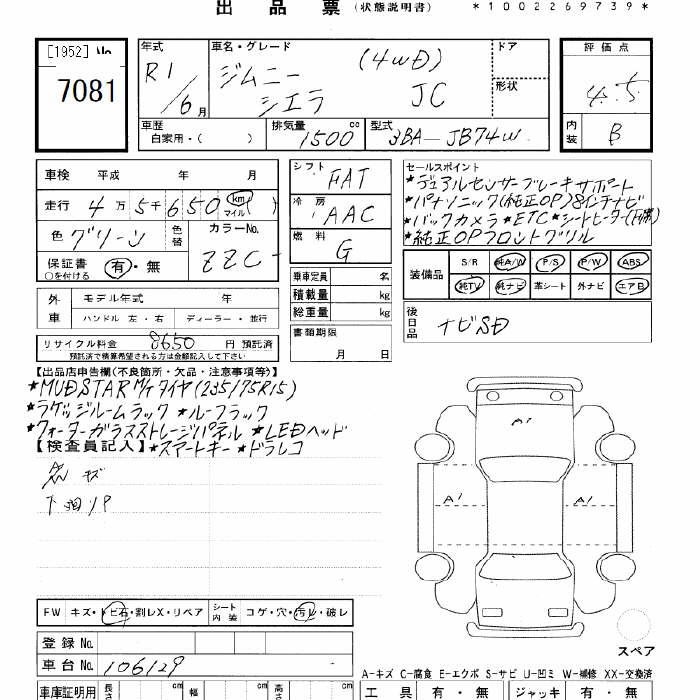 出品票 (状態説明書) *1002269739*
[1952] No.
7081
年式 R1 / 6月
車名・グレード ジムニー (4WD)
シエラ JC
ドア
形状
評価点 4.5
内装 B
車歴 自家用・( )
排気量 1500 cc
型式 3BA-JB74W
車検 平成 年 月
走行 4万5千650 km マイル ( )
色 グリーン 色替
カラーNo. ZZC-
保証書 ○を付ける 有・無
シフト FAT
冷房 AAC
燃料 G
セールスポイント
★デュアルセンサーブレーキサポート
★パナソニック(純正OP)8インチナビ
★バックカメラ★ETC★シートヒーター(前席)
★純正OPフロントグリル
乗車定員 名
積載量 kg
総重量 kg
装備品 S/R 純A/W P/S P/W ABS
純TV 純ナビ 革シート 外ナビ エアB
外車 モデル年式 年
ハンドル 左・右 ディーラー・並行
書類期限
月 日
後日品 ナビSD
リサイクル料金 8650 円 預託済
預託済で精算希望されている方は金額記入して下さい
【出品店申告欄(不良箇所・欠品・注意事項等)】
★MUDSTAR M/Tタイヤ(235/75R15)
★ラゲッジルームラック ★ルーフラック
★クォーターガラスストレージパネル ★LEDヘッド
【検査員記入】★スマートキー★ドラレコ
キズ
下廻リP
A1
A1 A1
FW キズ・トビ石・割レX・リペア シート内装 コゲ・穴・汚レ・破レ
登録No.
車台No. 106129
スペア
A-キズ C-腐食 E-エクボ S-サビ U-凹ミ W-補修 XX-交換済
車庫証明用 長さ cm 幅 cm 高さ cm 工具 有・無 ジャッキ 有・無